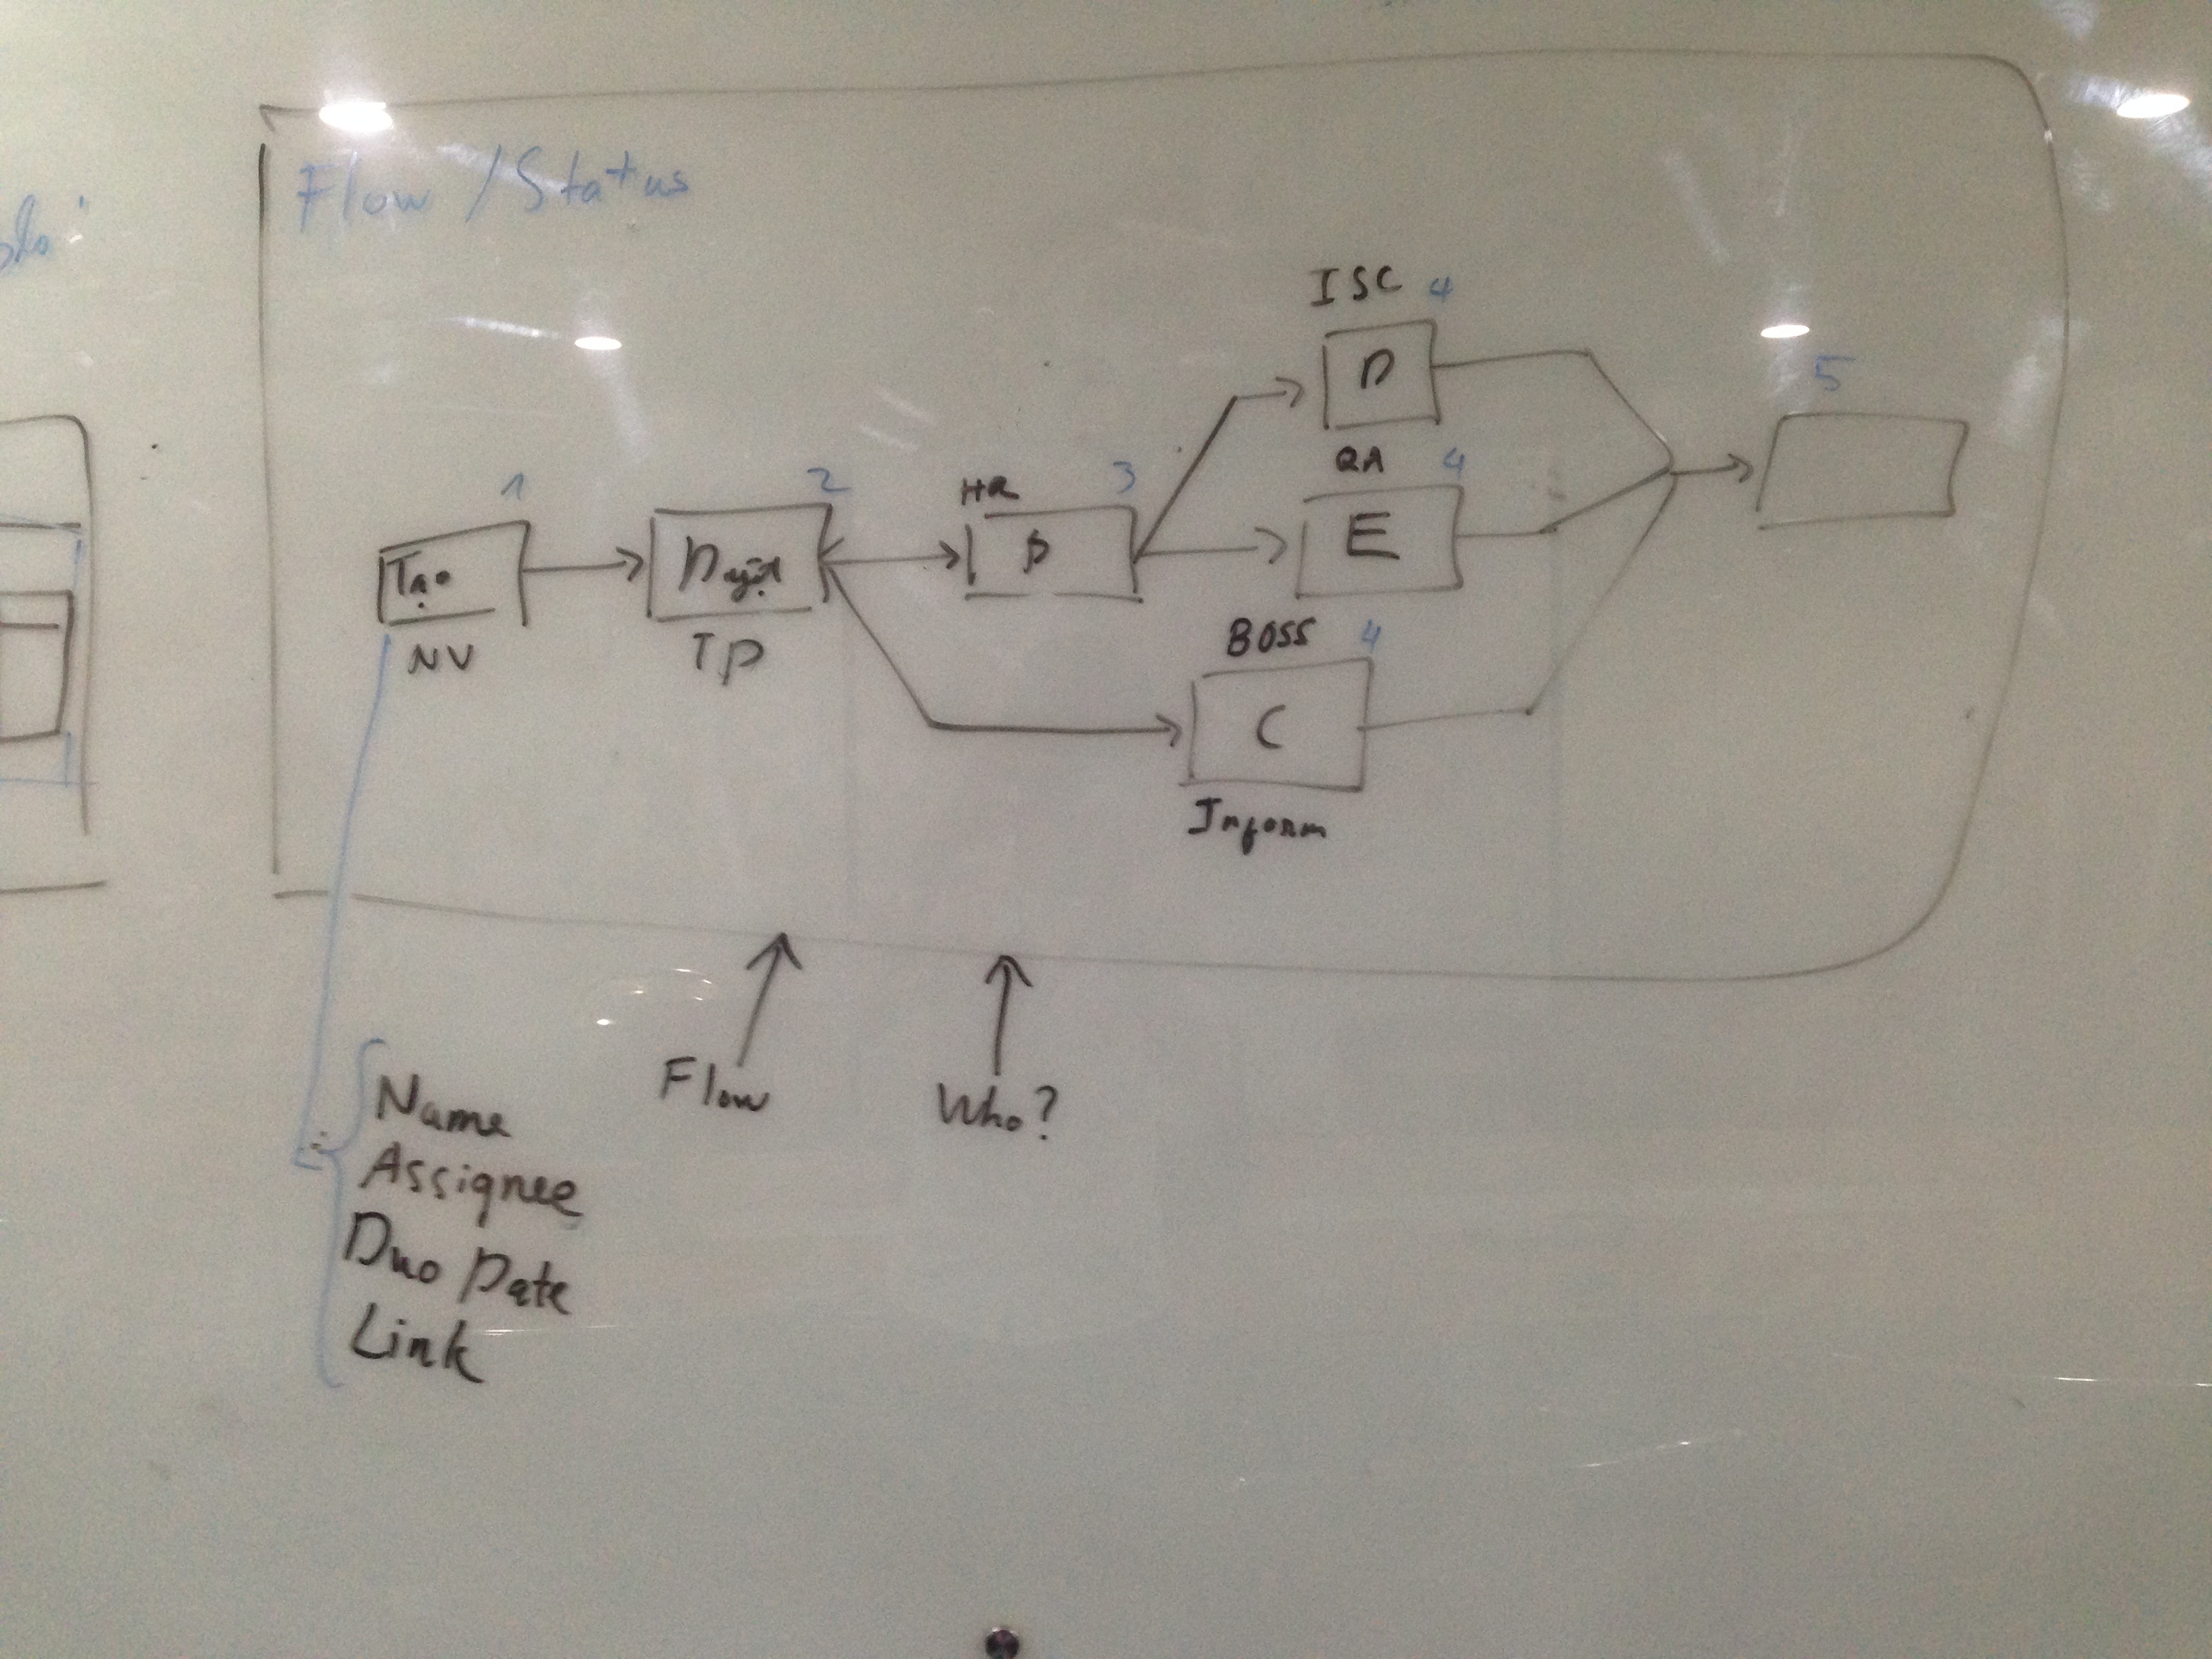 Flow / Status
ISC 4
D
5
QA 4
E
1
2
HR 3
B
Tạo
Duyệt
NV
TP
BOSS 4
C
Inform
Flow
Who?
Name
Assignee
Duo Date
Link